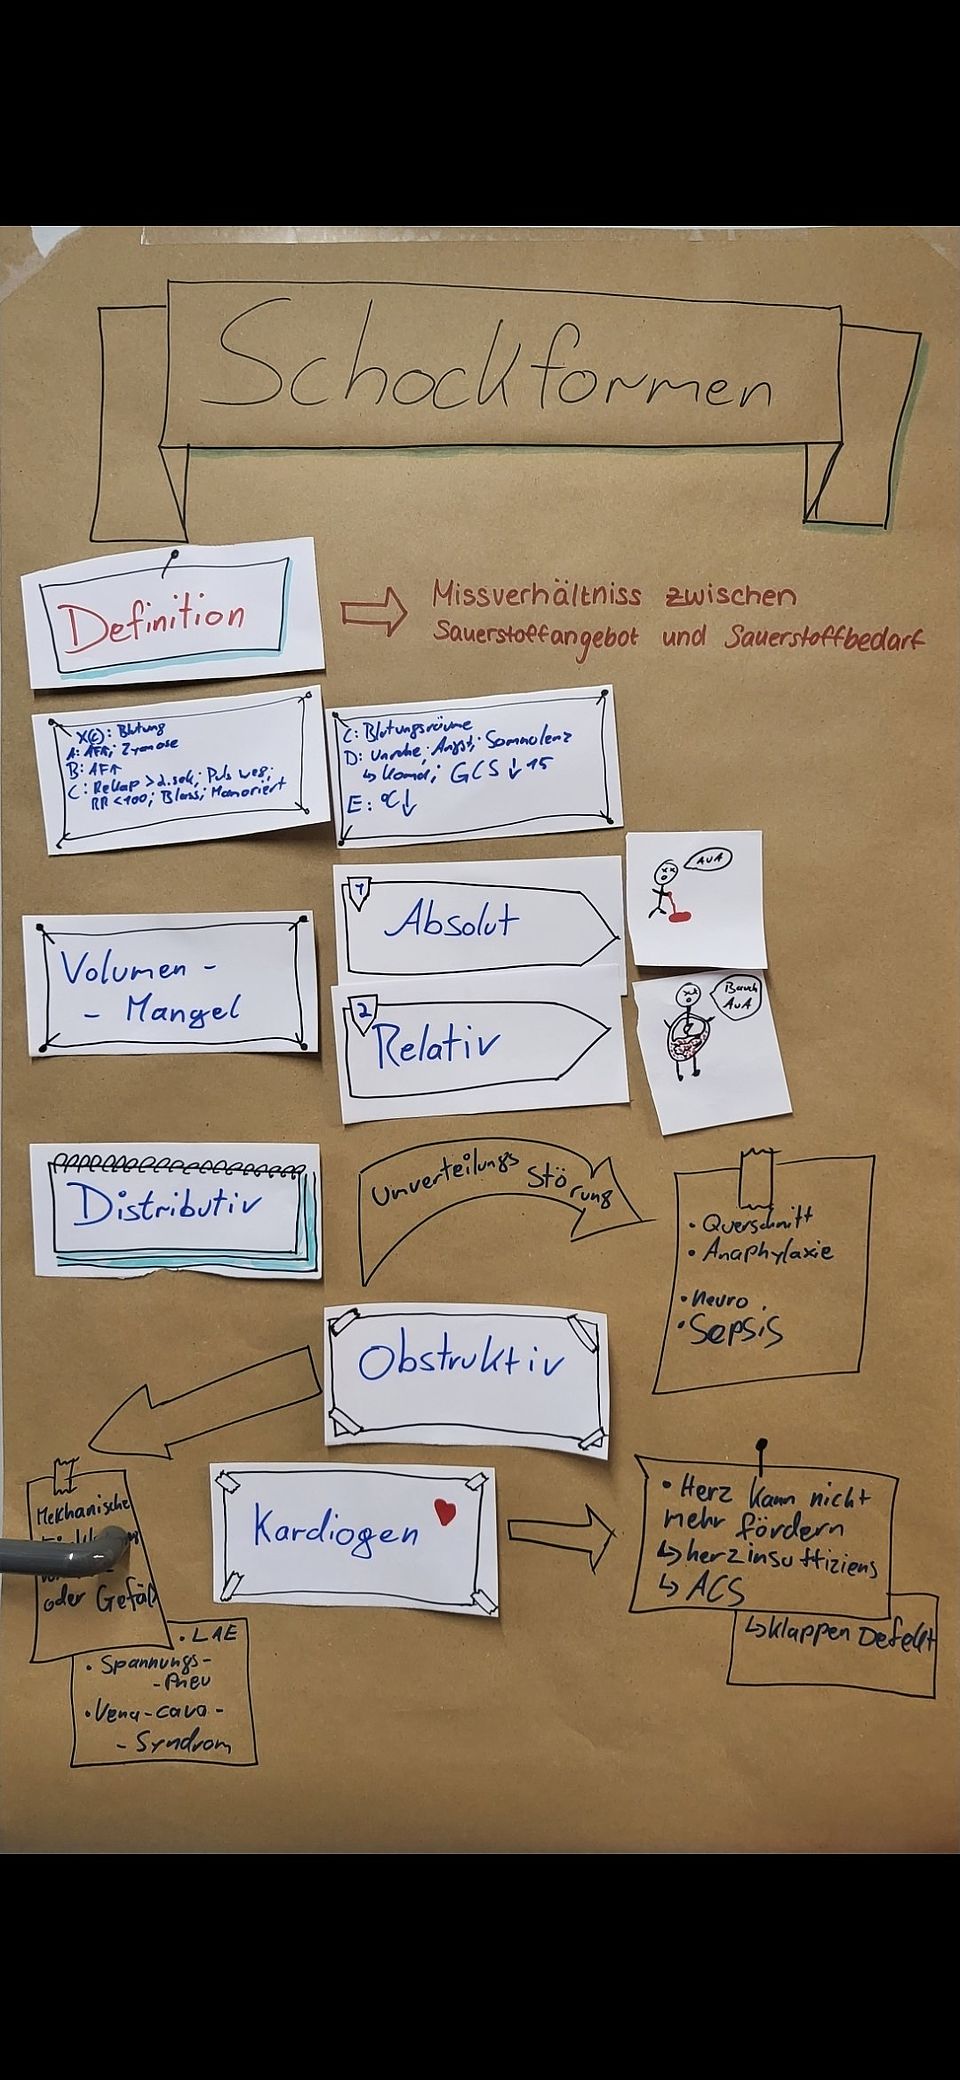 Schockformen
Definition
Missverhältniss zwischen
Sauerstoffangebot und Sauerstoffbedarf
X(c): Blutung
A: AF↑; Zyanose
B: AF↑
C: ReKap >2.sek; Puls weg;
RR <100; Blass; Mamoriert
C: Blutungsräume
D: Unruhe; Angst; Somnolenz
↳ Koma; GCS ↓ 15
E: °C↓
1
Absolut
AUA
Volumen -
- Mangel
2
Relativ
Bauch
AUA
Distributiv
Umverteilungs Störung
• Querschnitt
• Anaphylaxie
• Neuro
• Sepsis
Obstruktiv
Mechanische
oder Gefäß
• LAE
• Spannungs-
- Pneu
• Vena-cava-
- Syndrom
Kardiogen
• Herz kann nicht
mehr fördern
↳ herzinsuffiziens
↳ ACS
↳ Klappen Defekt